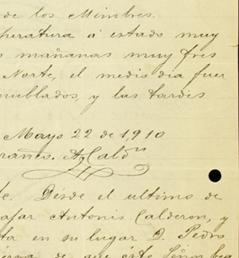 de los Mimbres.
peratura á estado muy
s mañanas muy fres
Norte, el medio dia fuer
nublados, y las tardes
Mayo 22 de 1910
te. Desde el ultimo de
ajar Antonio Calderon, y
ta en su lugar D. Pedro
de que éste Señor